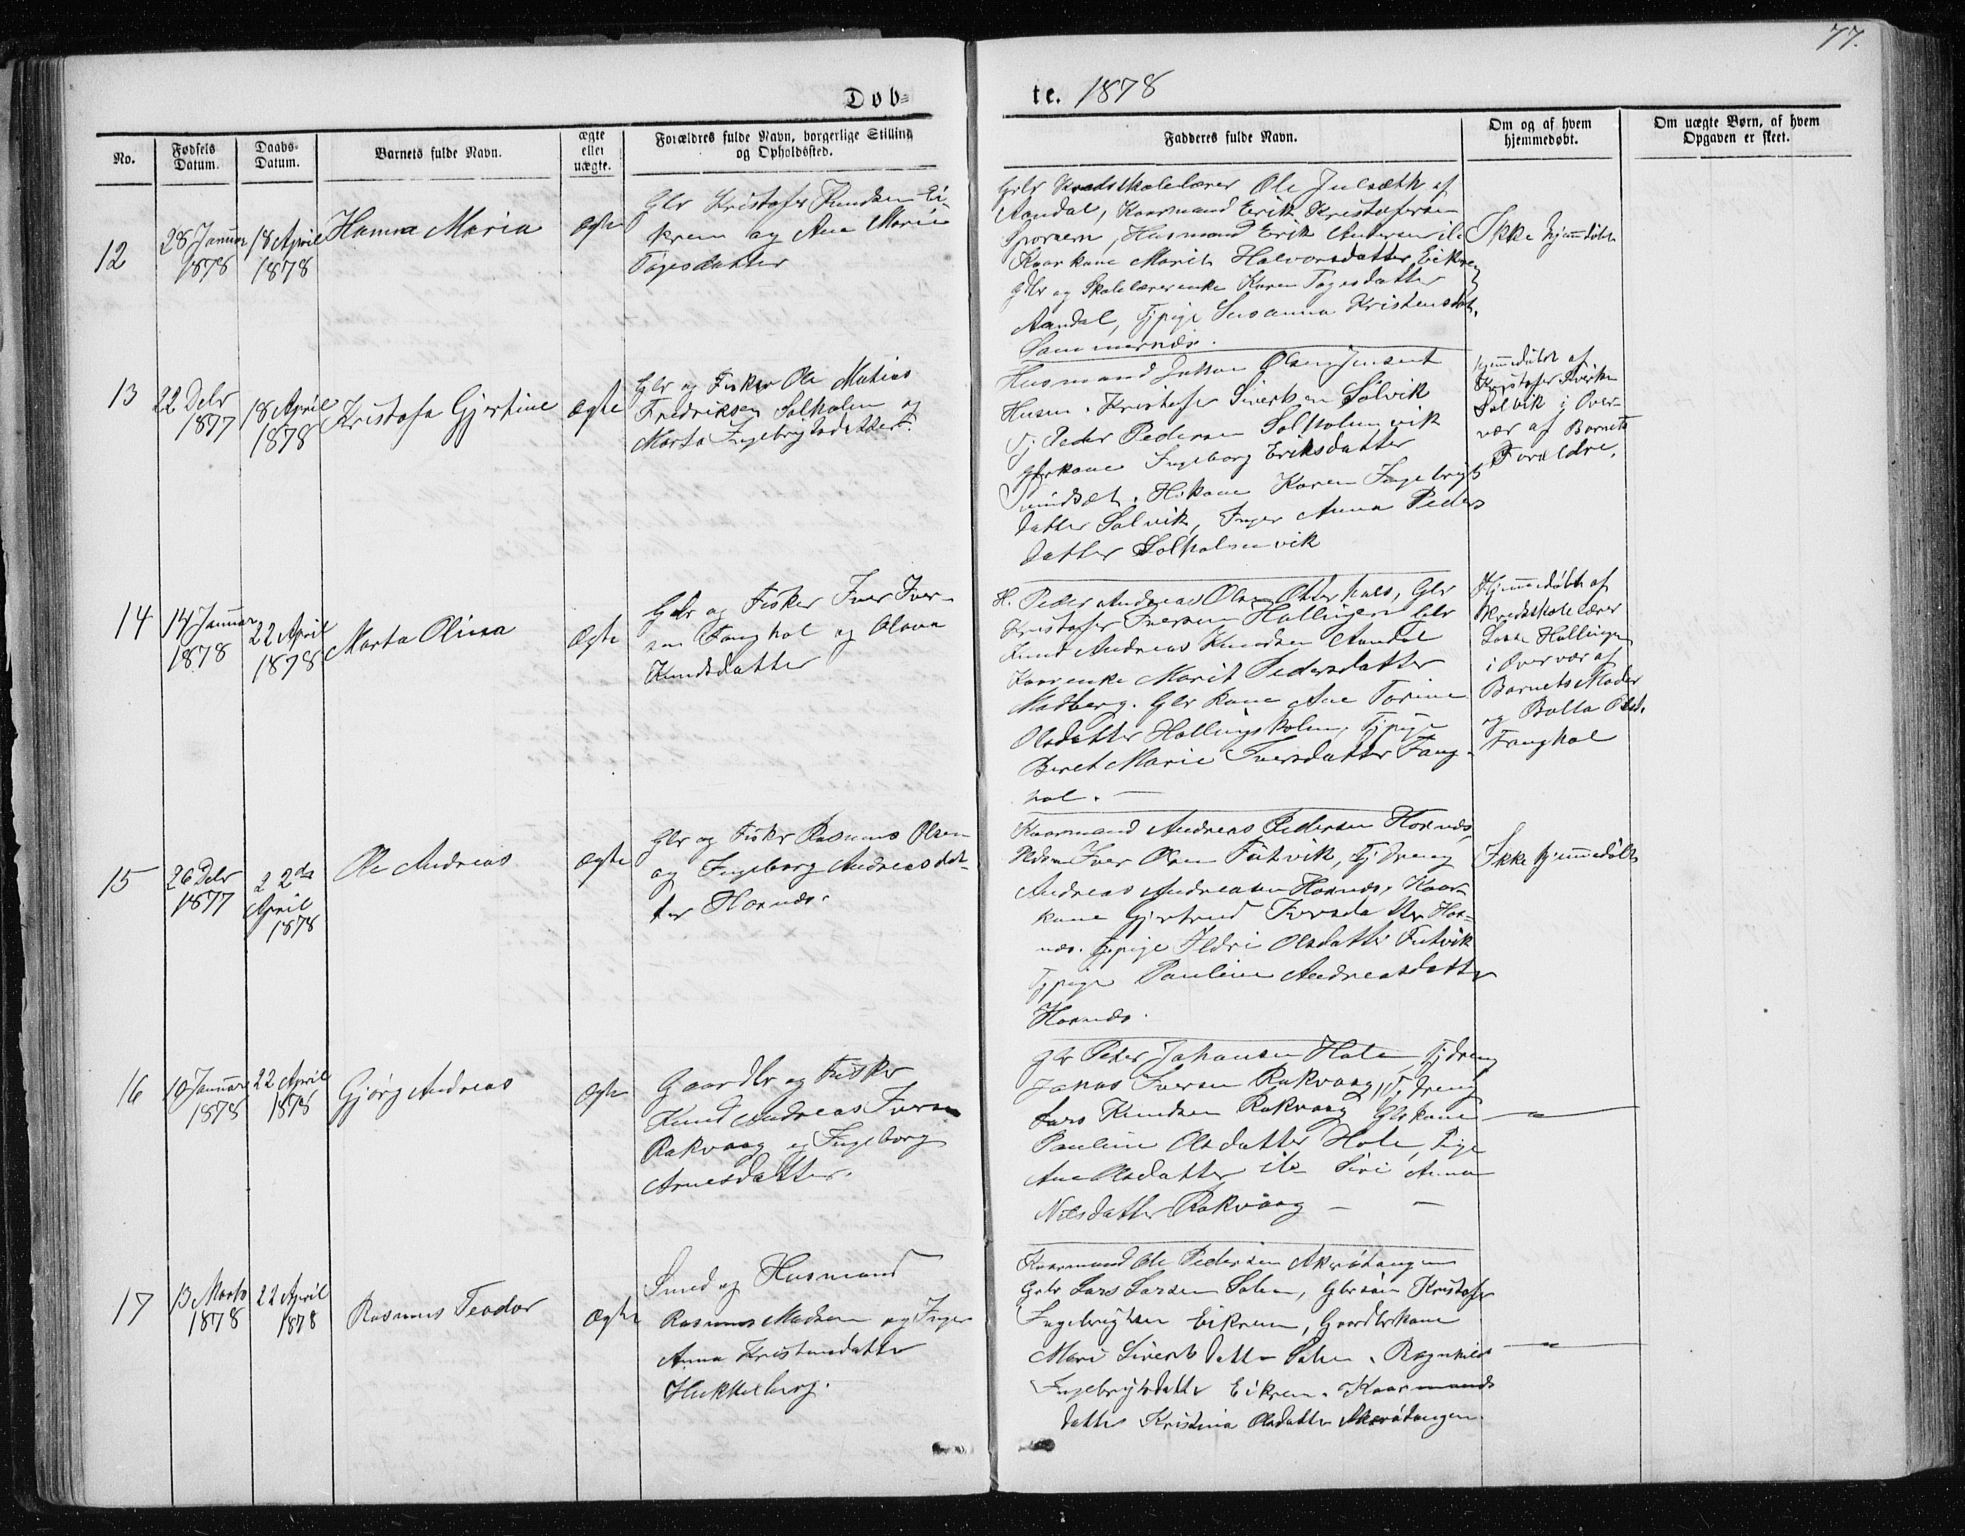 77.
Døb=
te. 1878
No.
Fødsels
Datum.
Daabs-
Datum.
Barnets fulde Navn.
ægte
eller
uægte.
Forældres fulde Navn, borgerlige Stilling
og Opholdssted.
Faddernes fulde Navn.
Om og af hvem
hjemmedøbt.
Om uægte Børn, af hvem
Opgaven er skeet.
12
28 Januar
1878
18 April
1878
Hanna Maria
ægte
Gbr Kristofer Knudsen Ei-
krem og Ane Marie
Tøgesdatter
Gbr Kredsskolelærer Ole Julsæth af
Aandal, Kaarmand Erik Kristofersen
Husmand Erik Andersen ib
Kaarkone Marit Halvorsdatter Eikrem
Gbr og Skolelærerenke Karen Tøgesdatter
Aandal, Tjpige Susanna Kristensdat.
Sammernæs.
Ikke hjemdøbt
13
22 Debr
1877
18 April
1878
Kristofa Gjertine
ægte
Gbr og Fisker Ole Matias
Fredriksen Solholm og
Marta Ingebrigtsdatter.
Husmand Jakob Olsen
Husm. Kristofer Sivertsen Solvik
Peder Pedersen Solholmvik
Gbrkone Ingeborg Eriksdatter
H.kone Karen Ingebrigts
datter Solvik, Inger Anna Peders
datter Solholmvik
Hjemmedøbt af
Kristofer Sivertsen
Solvik i Over-
vær af Barnets
Forældre.
14
14 Januar
1878
22 April
1878
Marta Olina
ægte
Gbr og Fisker Iver Iver-
sen Fanghol og Olava
Knudsdatter
H. Peder Andreas Olsen Otterhals, Gbr
Kristofer Iversen Hallingen Gbr
Knud Andreas Knudsen Aandal
Kaarenke Marit Pedersdatter
Madberg. Gbr kone Ane Torine
Olsdatter Hallingsholm, Tjpige
Beret Marie Iversdatter Fang-
hol. —
Hjemmedøbt af
Kredsskolelærer
Hallingen
i Overvær af
Barnets Moder
og
Fanghol
15
26 Debr
1877
22de
April
1878
Ole Andreas
ægte
Gbr og Fisker Rasmus Olsen
og Ingeborg Andreasdat-
ter Hornæs.
Kaarmand Andreas Pedersen Hornæs,
Iver Olsen Futvik, Tjdreng
Andreas Andreasen Hornæs, Kaar-
kone Gjertrud Iversdatter Hor-
næs. Tjpige Ildri Olsdatter Futvik
Tjpige Pauline Andreasdatter
Hornæs.
Ikke hjemmedøbt
16
10 Januar
1878
22 April
1878
Gjørg Andreas
ægte
Gaardbr og Fisker
Knud Andreas Iversen
Rakvaag og Ingeborg
Arnesdatter.
Gbr Peder Johansen Hole, Tjdreng
Jonas Iversen Rakvaag, Tjdreng
Lars Knudsen Rakvaag Gbrkone
Pauline Olsdatter Hole, Pige
Ane Olsdatter ib Siri Anna
Nilsdatter Rakvaag — —
—"—
17
13 Marts
1878
22 April
1878
Rasmus Teodor
ægte
Smed og Husmand
Rasmus Madsen og Inger
Anna Kristensdatter
Hukkelberg.
Kaarmand Ole Pedersen Akerøtangen
Gbr Lars Larsen Solem, Gbrsøn Kristofer
Ingebrigtsen Eikrem, Gaardbrkone
Mari Sivertsdatter Solem. Ragnhild
Ingebrigtsdatter Eikrem. Kaarmands
datter Kristina Olsdatter Akerøtangen
—"—